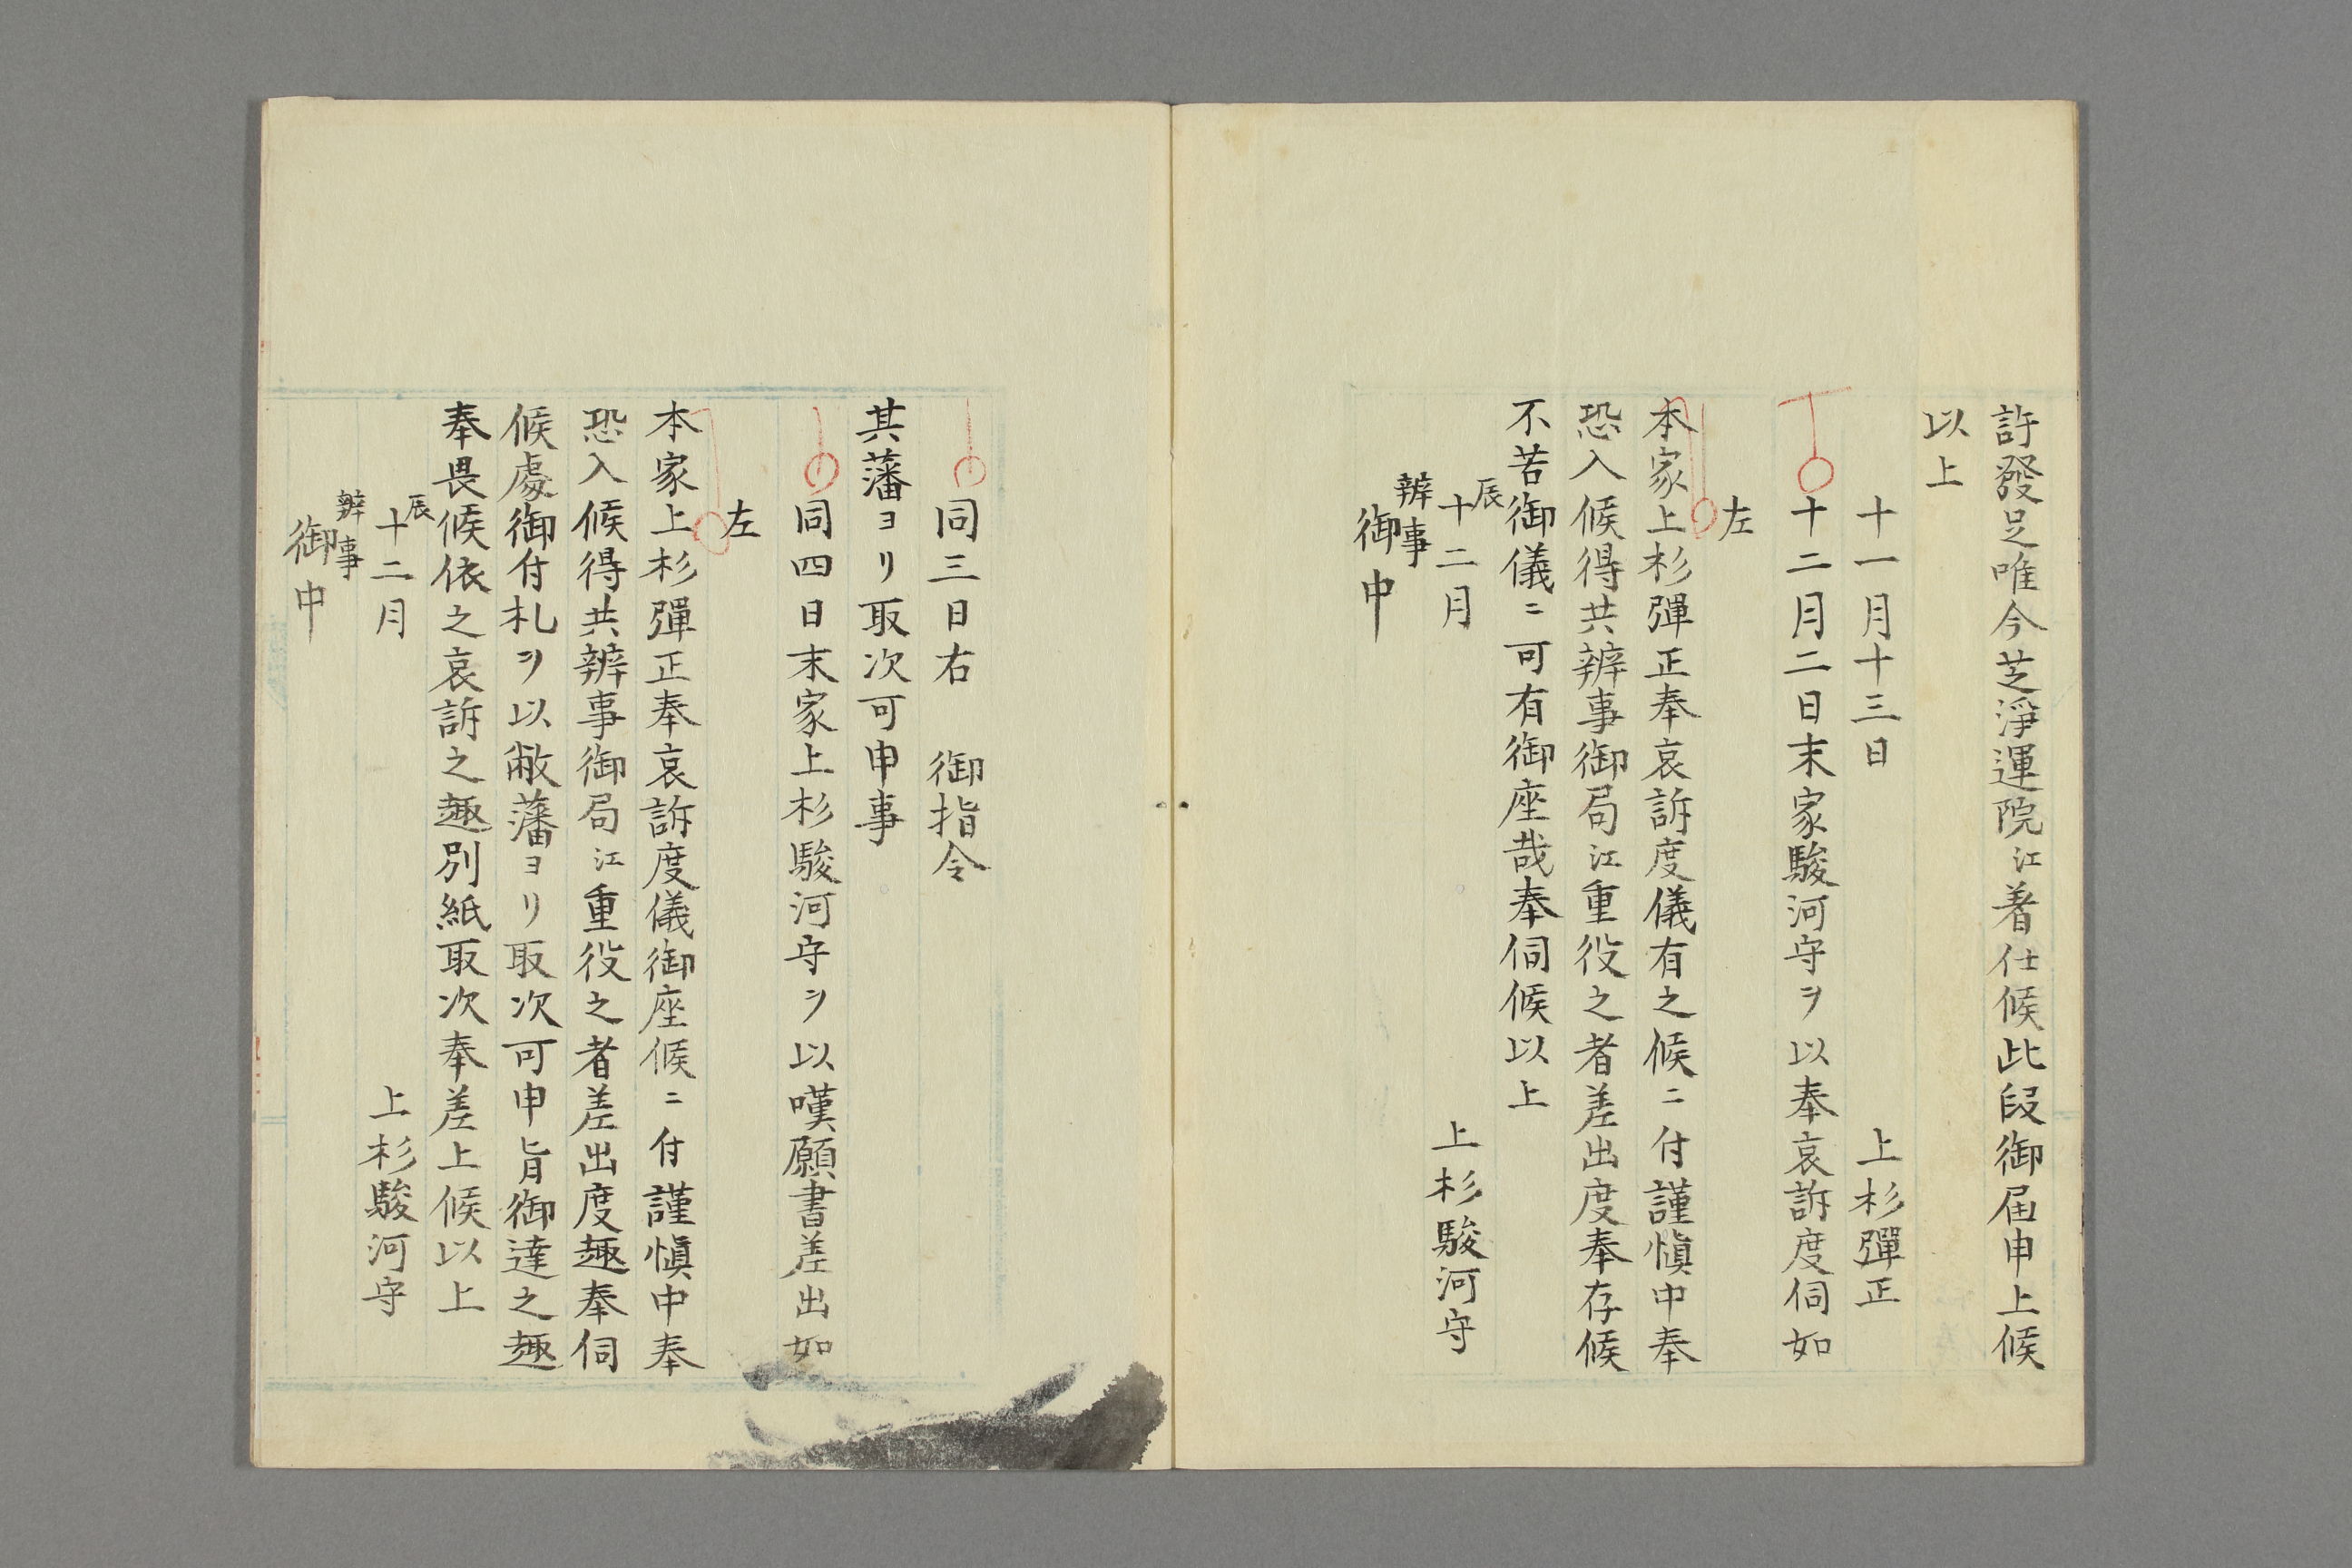 許發足唯今芝淨運院江着仕候此段御届申上候
以上
十一月十三日　上杉彈正
十二月二日末家駿河守ヲ以奉哀訴度伺如
左
本家上杉彈正奉哀訴度儀有之候ニ付謹愼中奉
恐入候得共辨事御局江重役之者差出度奉存候
不苦御儀ニ可有御座哉奉伺候以上
辰十二月　上杉駿河守
辨事
御中
同三日右　御指令
其藩ヨリ取次可申事
同四日末家上杉駿河守ヲ以嘆願書差出如
左
本家上杉彈正奉哀訴度儀御座候ニ付謹愼中奉
恐入候得共辨事御局江重役之者差出度趣奉伺
候處御付札ヲ以敝藩ヨリ取次可申旨御達之趣
奉畏候依之哀訴之趣別紙取次奉差上候以上
辰十二月　上杉駿河守
辨事
御中